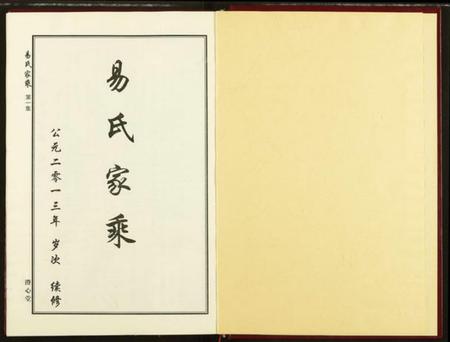 易氏家乘
公元二零一三年 岁次 续修
易氏家乘 第一集
澄心堂